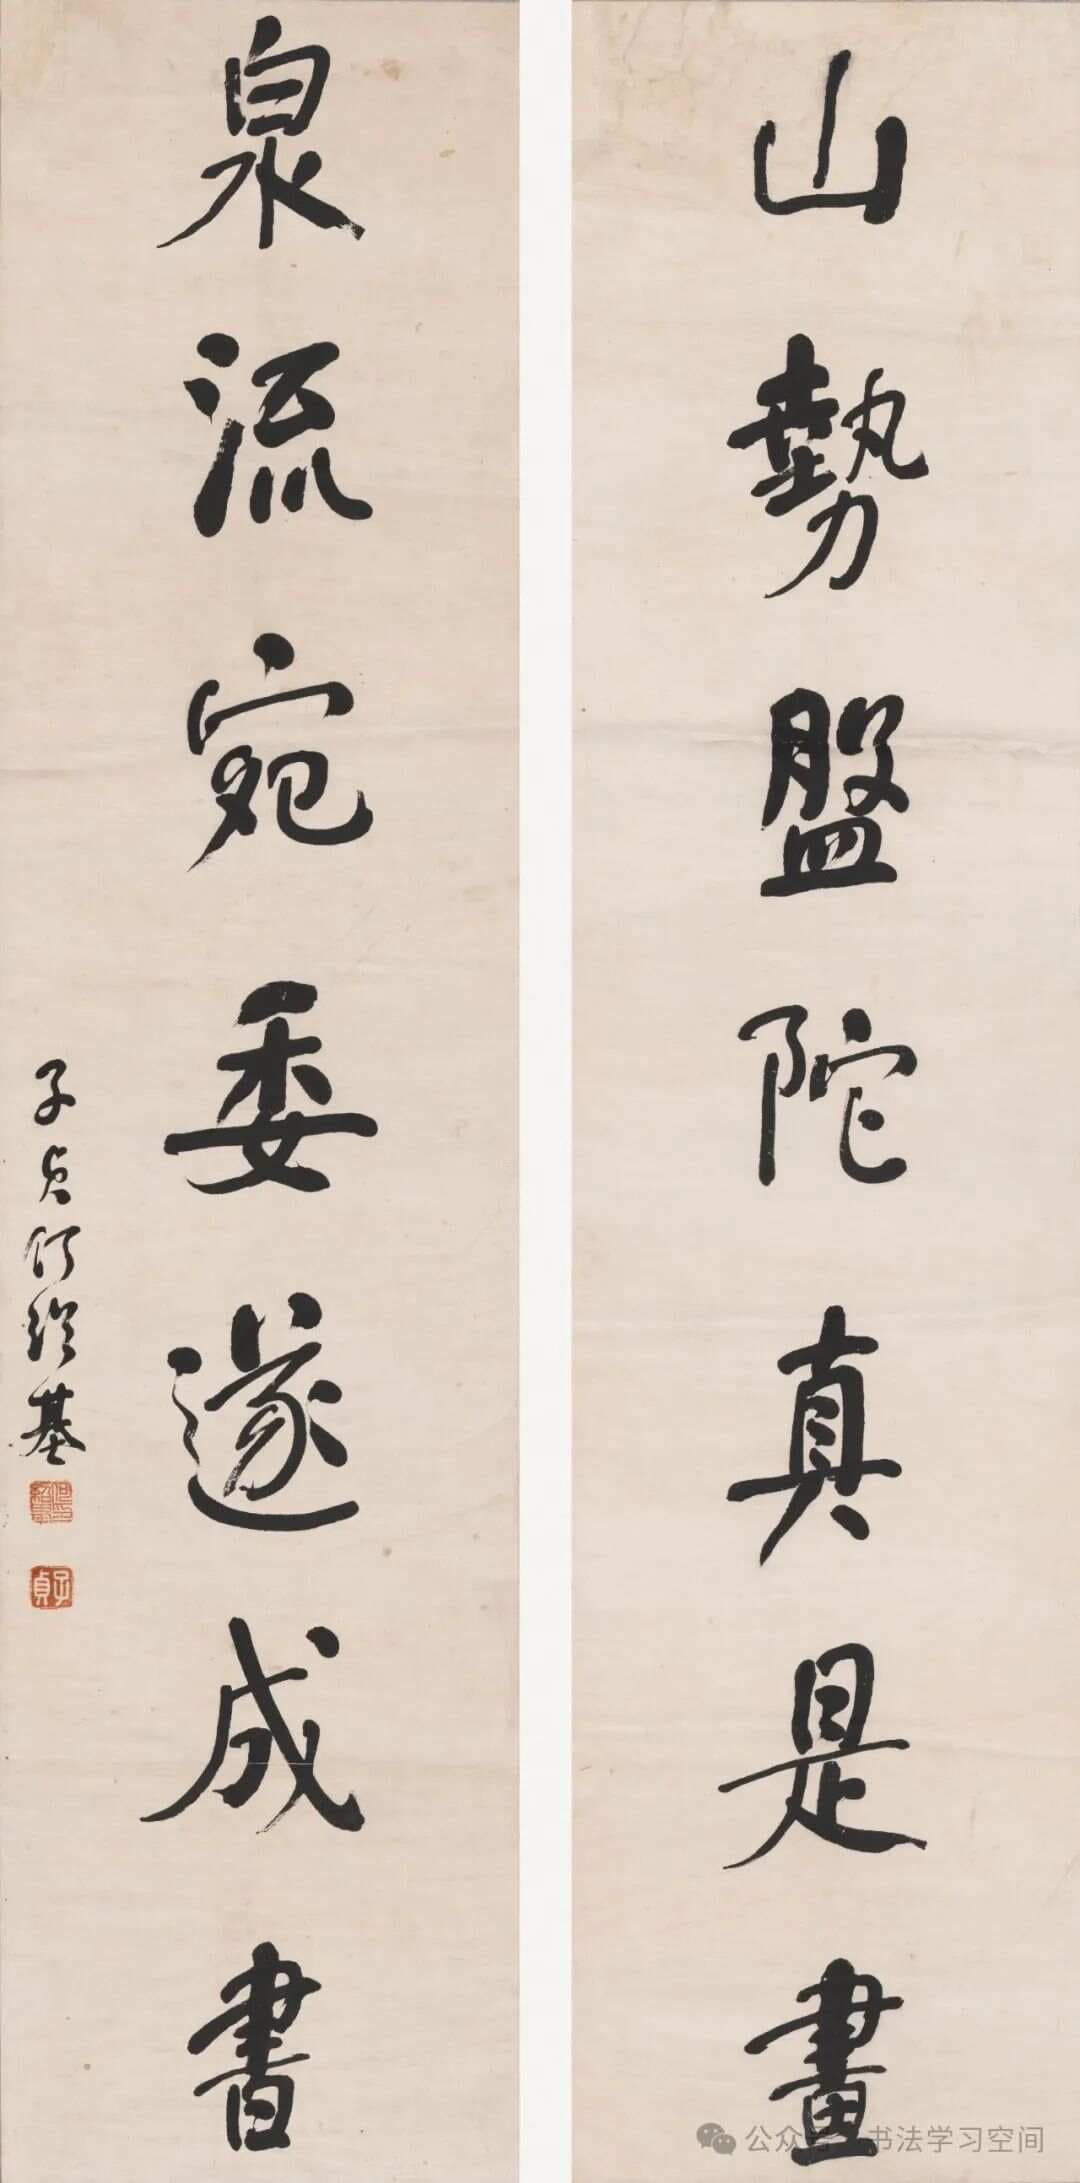 山勢盤陀真是畫
泉流宛委遂成書
子貞何紹基
子貞
公众号 书法学习空间